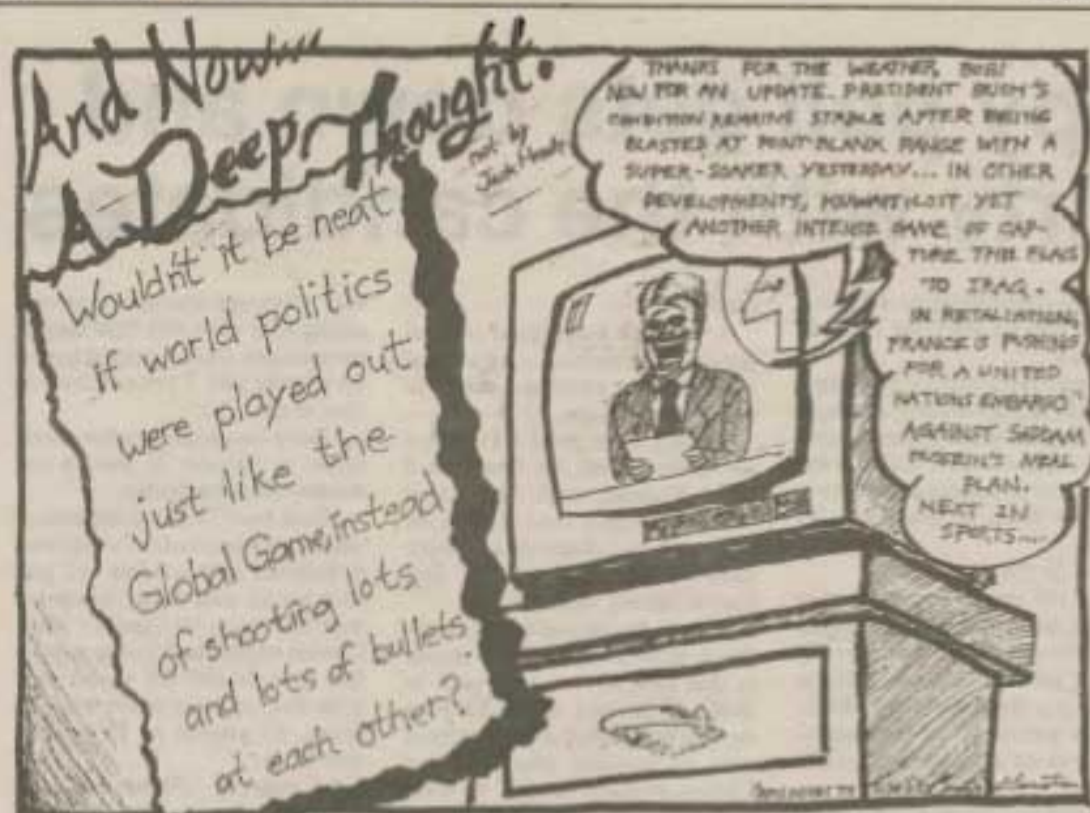 And Now....
A Deep Thought.
not by
Jack Handy
Wouldn't it be neat
if world politics
were played out
just like the
Global Game, instead
of shooting lots
and lots of bullets
at each other?
THANKS FOR THE WEATHER, BOB!
NOW FOR AN UPDATE. PRESIDENT BUSH'S
CONDITION REMAINS STABLE AFTER BEING
BLASTED AT POINT-BLANK RANGE WITH A
SUPER-SOAKER YESTERDAY... IN OTHER
DEVELOPMENTS, KUWAIT LOST YET
ANOTHER INTENSE GAME OF CAP-
TURE THE FLAG
TO IRAQ.
IN RETALIATION,
FRANCE IS PUSHING
FOR A UNITED
NATIONS EMBARGO
AGAINST SADDAM
HUSSEIN'S MEAL
PLAN.
NEXT IN
SPORTS....
4